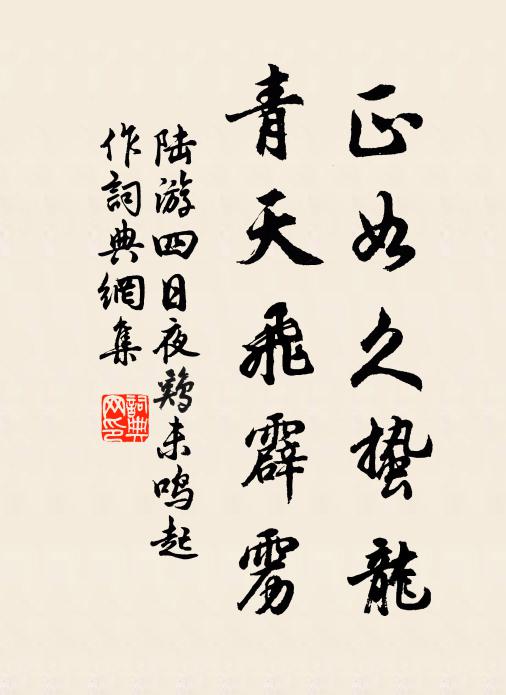 正如久蛰龍
青天飛霹雳
陆游四日夜鷄未鸣起
作詞典網集
詞典网印